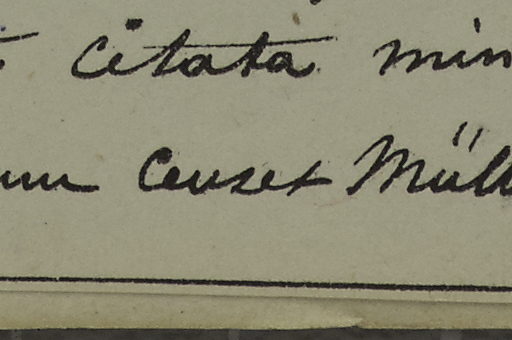 citata min
censet Müll